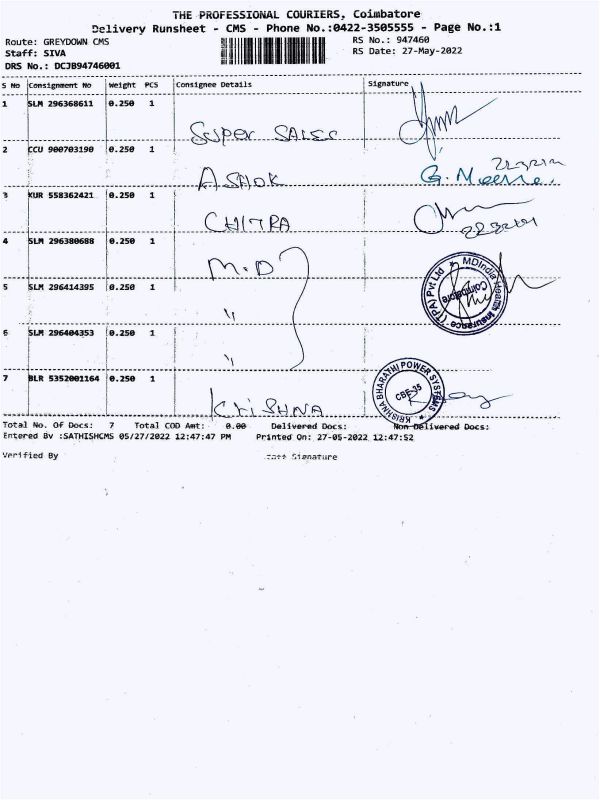 THE PROFESSIONAL COURIERS, Coimbatore
Delivery Runsheet - CMS - Phone No.:0422-3505555 - Page No.:1
Route: GREYDOWN CMS RS No.: 947460
Staff: SIVA RS Date: 27-May-2022
DRS No.: DCJB94746001
S No Consignment No Weight PCS Consignee Details Signature
1 SLM 296368611 0.250 1
SUPER SALES
2 CCU 900703190 0.250 1
ASHOK G. Meena.
3 KUR 558362421 0.250 1
CHITRA
4 SLM 296380688 0.250 1
M.D
MDIndia Health Insurance (TPA) Pvt Ltd
Coimbatore
5 SLM 296414395 0.250 1
"
6 SLM 296404353 0.250 1
"
7 BLR 5352001164 0.250 1
KRISHNA BHARATHI POWER SYSTEMS
CBE-35
KRISHNA
Total No. Of Docs: 7 Total COD Amt: 0.00 Delivered Docs: Non Delivered Docs:
Entered By :SATHISHCMS 05/27/2022 12:47:47 PM Printed On: 27-05-2022 12:47:52
Verified By Signature